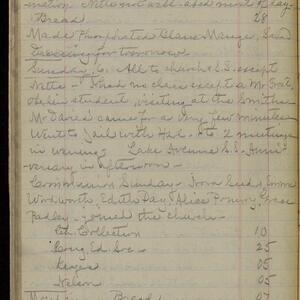 Nettie not well
Bread 28
Made Phosphated Blanc Mange, Sand
for tomorrow
Sunday, 6. All to church & S.S. except
Nettie - I had no class except a Mr.
student, visiting at the Smiths.
came for a very few minutes
Went to jail with Hal. to 2 meetings
in evening. Lake Avenue S.S. Anni-
versary in afternoon -
Communion Sunday -
Wodworth, Edith Day, Alice Pomroy, Grace
Padley - joined the church -
Ch. Collection 10
Cong. Ed. Soc - 25
Keyes 05
Nelson 05
Bread 07